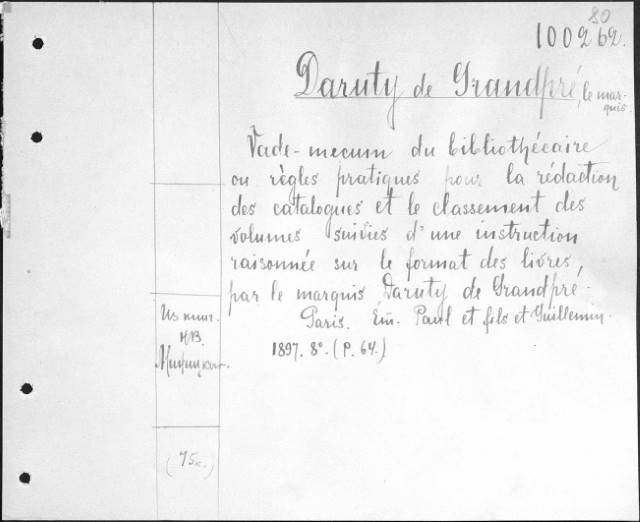 80
100262.
Daruty de Grandpré, le mar-
quis.
Vade-mecum du bibliothécaire
ou règles pratiques pour la rédaction
des catalogues et le classement des
volumes suivies d'une instruction
raisonnée sur le format des livres,
par le marquis Daruty de Grandpré.
Paris. Ém. Paul et fils et Guillemin.
1897. 8°. (P. 64.)
Из книг.
(75к.)